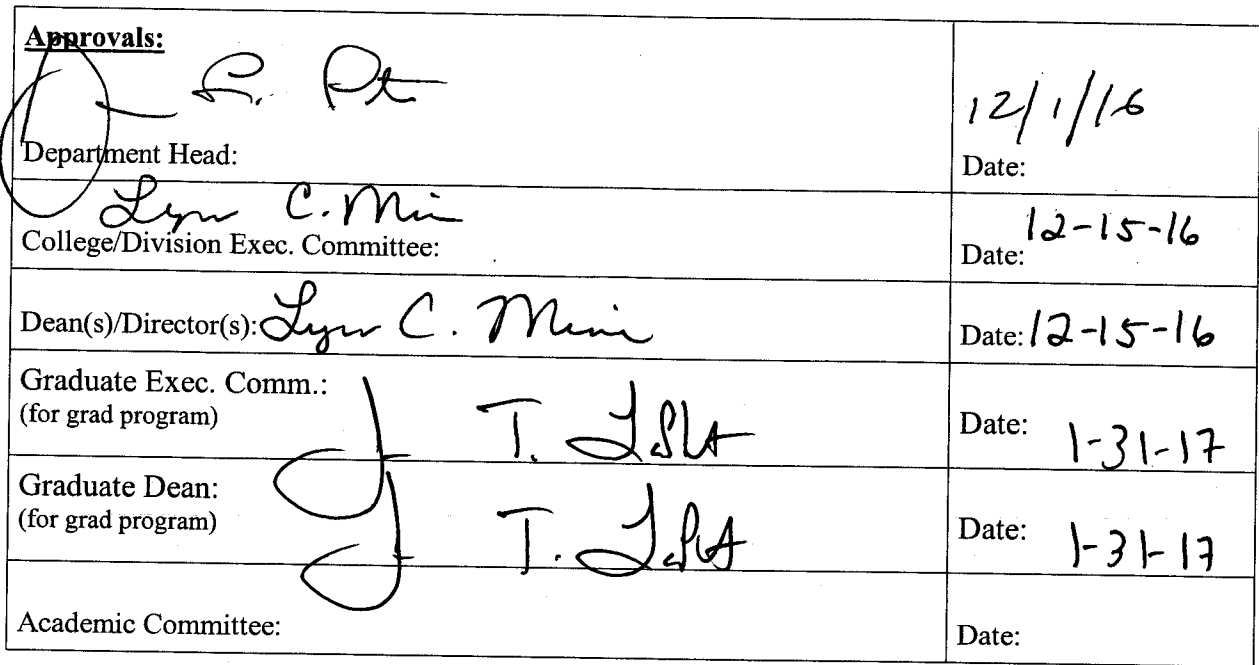 Approvals:
12/1/16
Department Head:
Date:
Lynn C. 
College/Division Exec. Committee:
Date: 12-15-16
Dean(s)/Director(s): Lynn C.
Date: 12-15-16
Graduate Exec. Comm.:
(for grad program)
J T.
Date: 1-31-17
Graduate Dean:
(for grad program)
J T.
Date: 1-31-17
Academic Committee:
Date: